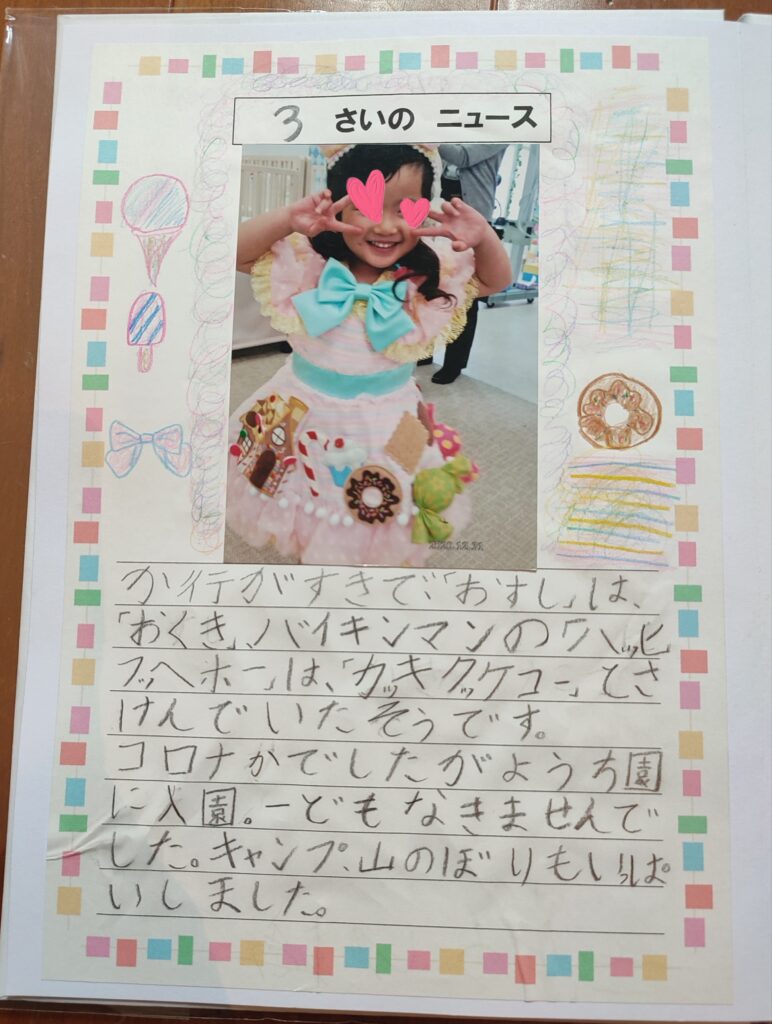 3 さいの ニュース
か行がすきで、「おすし」は、
「おくき」、バイキンマンの「ハッヒ
フッヘホー」は、「カッキクッケコー」とさ
けんでいたそうです。
コロナかでしたがようち園
に入園。一どもなきませんで
した。キャンプ、山のぼりもいっぱ
いしました。